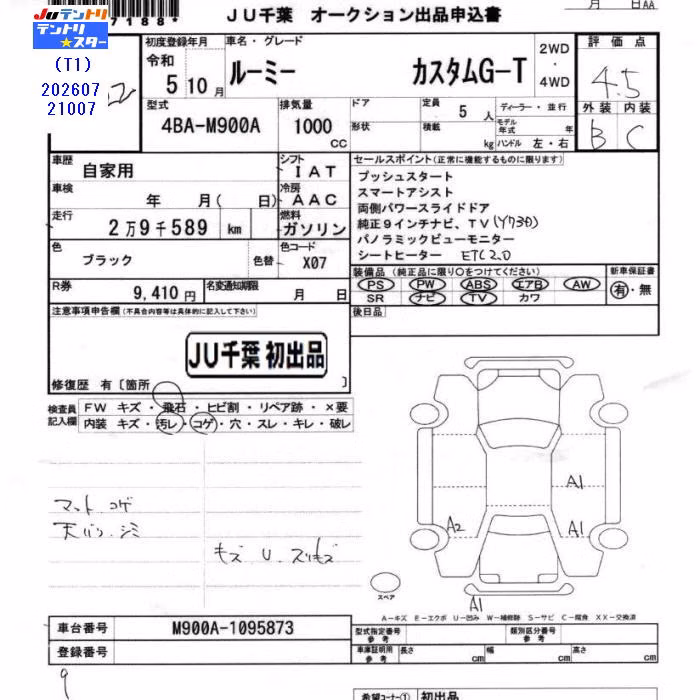 7188*
JU千葉 オークション出品申込書
月 日AA
JUテントリ
テントリ★スター
(T1)
202607
21007
初度登録年月
令和
5 10月
車名・グレード
ルーミー カスタムG-T
2WD
・
4WD
評価点
4.5
外装 内装
B C
型式
4BA-M900A
排気量
1000
CC
ドア
形状
定員
5 人
積載
kg
ディーラー・並行
モデル年式 年
ハンドル 左・右
車歴
自家用
シフト
IAT
車検
年 月( 日)
冷房
AAC
走行
2万9千589 km
燃料
ガソリン
色
ブラック
色替
色コード
X07
R券
9,410円
名変通知期限
月 日
セールスポイント(正常に機能するものに限ります)
プッシュスタート
スマートアシスト
両側パワースライドドア
純正9インチナビ、TV
パノラミックビューモニター
シートヒーター ETC2.0
装備品(純正品に限り○をつけてください)
PS PW ABS エアB AW
SR ナビ TV カワ
新車保証書
有・無
後日品
注意事項申告欄(不具合内容等は具体的に記入して下さい)
JU千葉 初出品
修復歴 有〔箇所 〕
検査員記入欄
FW キズ・飛石・ヒビ割・リペア跡・×要
内装 キズ・汚レ・コゲ・穴・スレ・キレ・破レ
マット コゲ
天バリ シミ
キズ U スリキズ
A2
A1
A1
A1
スペア
A―キズ E―エクボ U―凹み W―補修跡 S―サビ C―腐食 XX―交換済
車台番号 M900A-1095873
登録番号
型式指定番号
参考
類別区分番号
参考
車庫証明用
参考
長さ cm
幅 cm
高さ cm
希望コーナー① 初出品